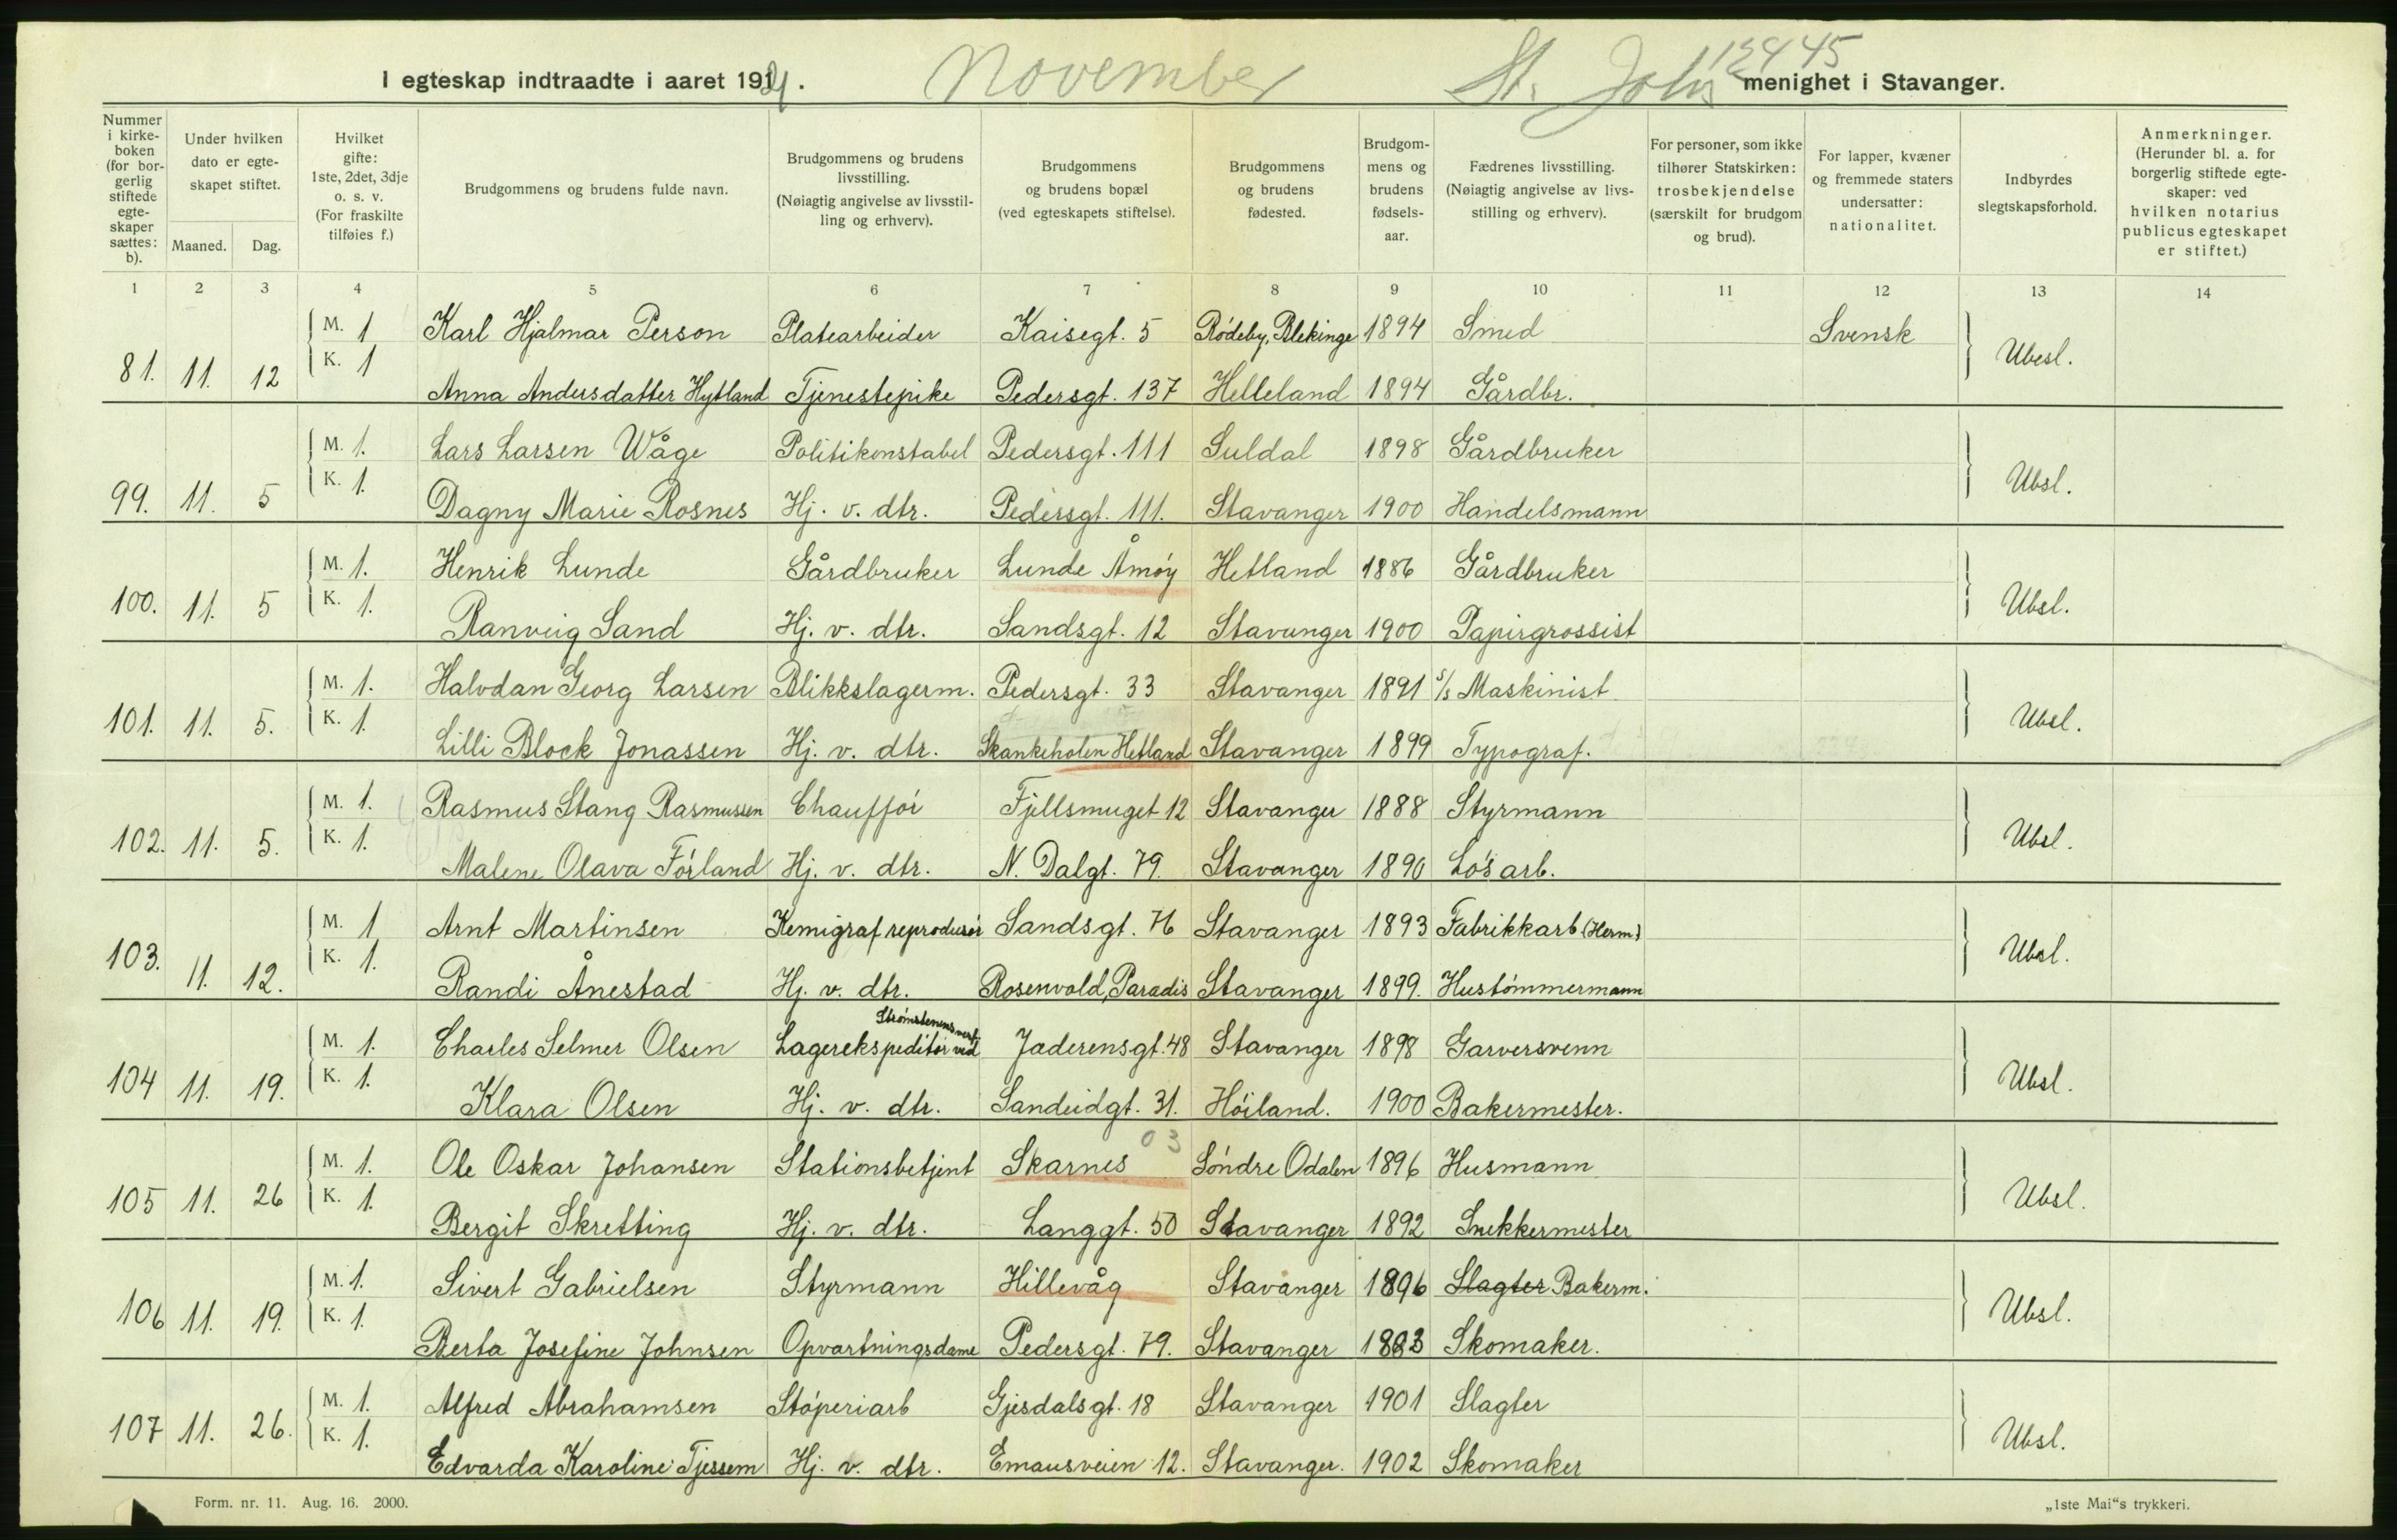 12445
I egteskap indtraadte i aaret 1921. November St. Johs menighet i Stavanger.
Nummer i kirkeboken (for borgerlig stiftede egteskaper sættes: b). Under hvilken dato er egteskapet stiftet. Maaned. Dag. Hvilket gifte: 1ste, 2det, 3dje o. s. v. (For fraskilte tilføies f.) Brudgommens og brudens fulde navn. Brudgommens og brudens livsstilling. (Nøiagtig angivelse av livsstilling og erhverv). Brudgommens og brudens bopæl (ved egteskapets stiftelse). Brudgommens og brudens fødested. Brudgommens og brudens fødselsaar. Fædrenes livsstilling. (Nøiagtig angivelse av livsstilling og erhverv). For personer, som ikke tilhører Statskirken: trosbekjendelse (særskilt for brudgom og brud). For lapper, kvæner og fremmede staters undersatter: nationalitet. Indbyrdes slegtskapsforhold. Anmerkninger. (Herunder bl. a. for borgerlig stiftede egteskaper: ved hvilken notarius publicus egteskapet er stiftet.)
1 2 3 4 5 6 7 8 9 10 11 12 13 14
M. 1 Karl Hjalmar Person Platearbeider Kaisegt. 5 Rödeby, Blekinge 1894 Smed Svensk
81. 11. 12 K. 1 Anna Andersdatter Hytland Tjenestepike Pedersgt. 137 Helleland 1894 Gårdbr. Ubesl.
M. 1. Lars Larsen Wåge Politikonstabel Pedersgt. 111 Suldal 1898 Gårdbruker
99. 11. 5 K. 1. Dagny Marie Rosnes Hj. v. dtr. Pedersgt. 111. Stavanger 1900 Handelsmann Ubsl.
M. 1. Henrik Lunde Gårdbruker Lunde Åmøy Hetland 1886 Gårdbruker
100. 11. 5 K. 1. Ranveig Sand Hj. v. dtr. Sandsgt. 12 Stavanger 1900 Papirgrossist Ubsl.
M. 1. Halvdan Georg Larsen Blikkslagerm. Pedersgt. 33 Stavanger 1891 s/s Maskinist
101. 11. 5. K. 1. Lilli Block Jonassen Hj. v. dtr. Skankeholen Hetland Stavanger 1899 Typograf. Ubsl.
M. 1. Rasmus Stang Rasmussen Chaufför Fjellsmuget 12 Stavanger 1888 Styrmann
102. 11. 5. K. 1. Malene Olava Förland Hj. v. dtr. N. Dalgt. 79. Stavanger 1890 Lös arb. Ubsl.
M. 1 Arnt Martinsen Kemigraf reprodusör Sandsgt. 76 Stavanger 1893 Fabrikkarb (Herm)
103. 11. 12. K. 1. Randi Ånestad Hj. v. dtr. Rosenvold, Paradis Stavanger 1899. Hustömmermann Ubsl.
M. 1. Charles Selmer Olsen Lagerekspeditör ved Strömstenens verft Jaderensgt. 48 Stavanger 1898 Garversvenn
104 11. 19. K. 1. Klara Olsen Hj. v. dtr. Sandeidgt. 31. Höiland. 1900 Bakermester. Ubsl.
03
M. 1. Ole Oskar Johansen Stationsbetjent Skarnes Söndre Odalen 1896 Husmann
105 11. 26 K. 1. Bergit Skretting Hj. v. dtr. Langgt. 50 Stavanger 1892 Snekkermester Ubsl.
M. 1. Sivert Gabrielsen Styrmann Hillevåg Stavanger 1896 Slagter Bakerm.
106 11. 19. K. 1. Berta Josefine Johnsen Opvartningsdame Pedersgt. 79. Stavanger 1893 Skomaker. Ubsl.
M. 1. Alfred Abrahamsen Stöperiarb Gjesdalsgt. 18 Stavanger 1901 Slagter
107 11. 26. K. 1. Edvarda Karoline Tjessem Hj. v. dtr. Emausveien 12. Stavanger. 1902 Skomaker Ubsl.
Form. nr. 11. Aug. 16. 2000. „1ste Mai“s trykkeri.